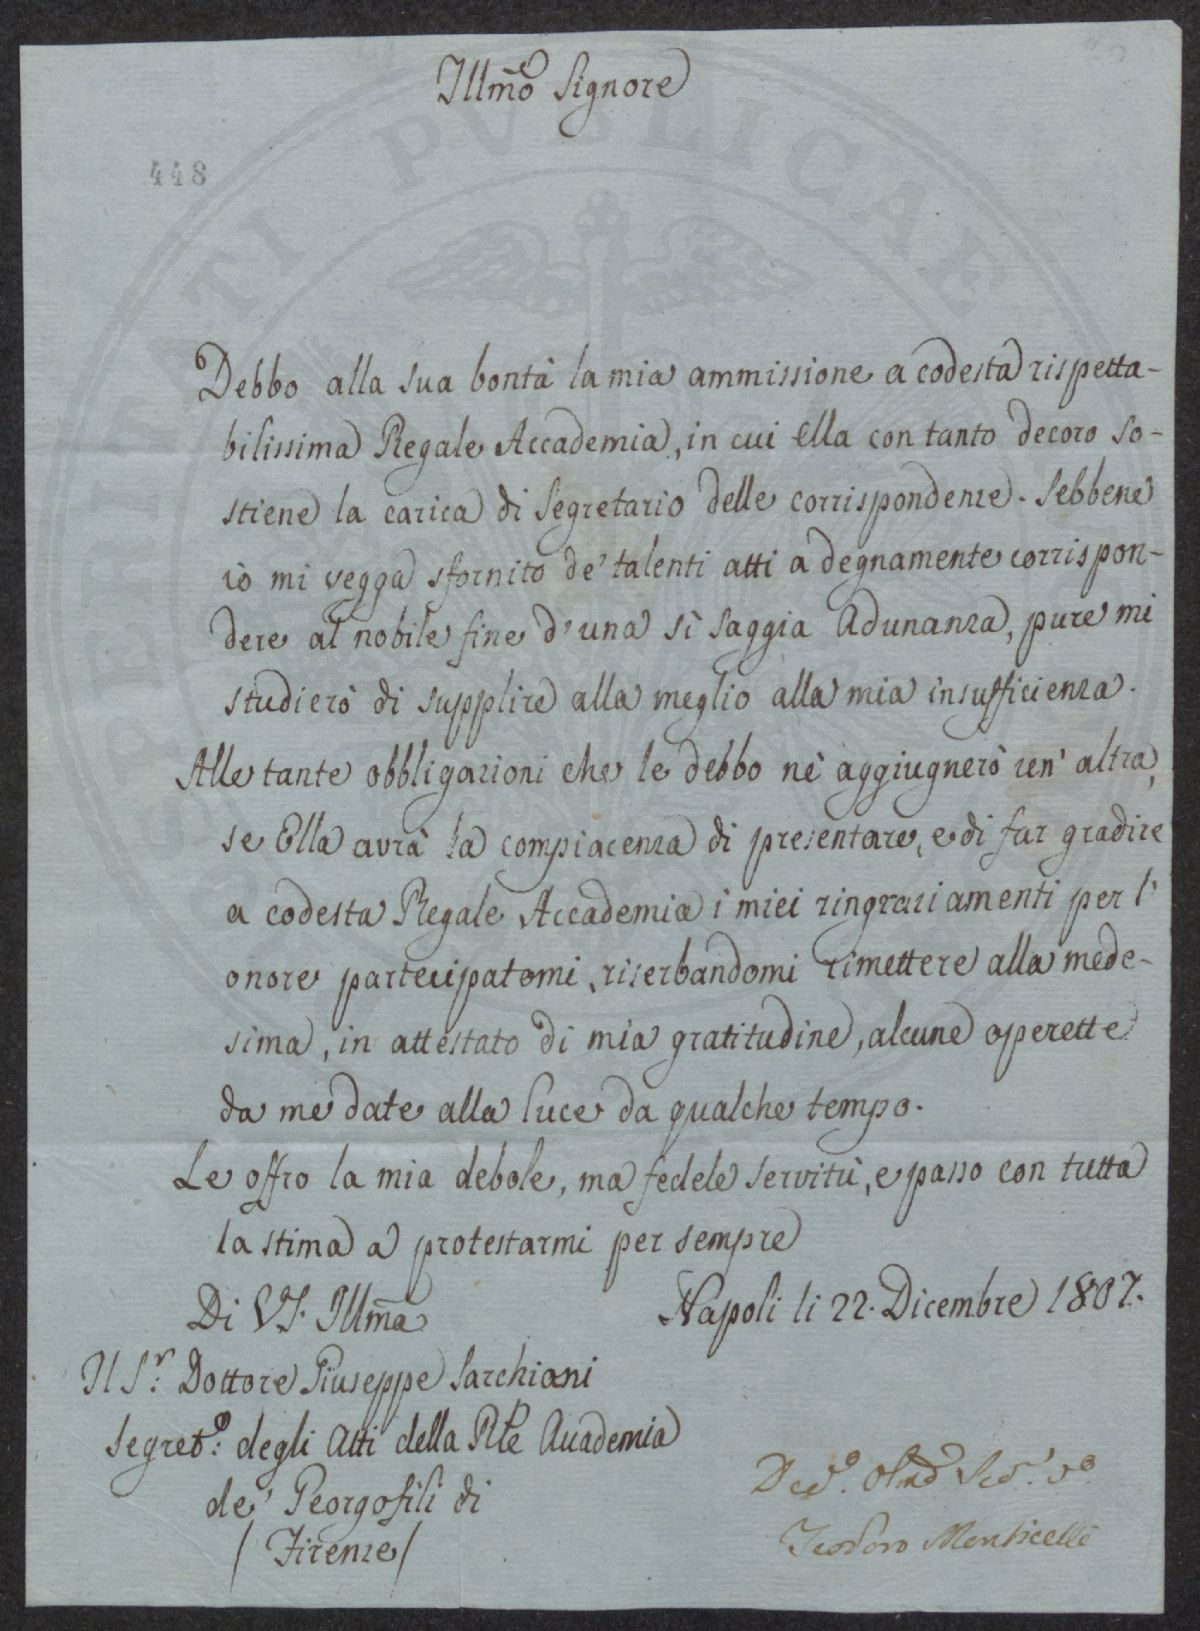 Illmo Signore
448
Debbo alla sua bontà la mia ammissione a codesta rispetta-
bilissima Regale Accademia, in cui Ella con tanto decoro so-
stiene la carica di Segretario delle corrispondenze. Sebbene
io mi vegga sfornito de' talenti atti a degnamente corrispon-
dere al nobile fine d'una sì saggia Adunanza, pure mi
studierò di supplire alla meglio alla mia insufficienza.
Alle tante obbligazioni che le debbo nè aggiugnerò un' altra,
se Ella avrà la compiacenza di presentare, e di far gradire
a codesta Regale Accademia i miei ringraziamenti per l'
onore partecipatomi, riserbandomi rimettere alla mede-
sima, in attestato di mia gratitudine, alcune operette
da me date alla luce da qualche tempo.
Le offro la mia debole, ma fedele servitù, e passo con tutta
la stima a protestarmi per sempre
Di VS. Illma
Napoli li 22. Dicembre 1807.
Il Sr: Dottore Giuseppe Sarchiani
Segreto: degli Atti della Rle Accademia
de' Georgofili di
/ Firenze /
Teodoro Monticelli
PROSPERITATI PUBLICAE